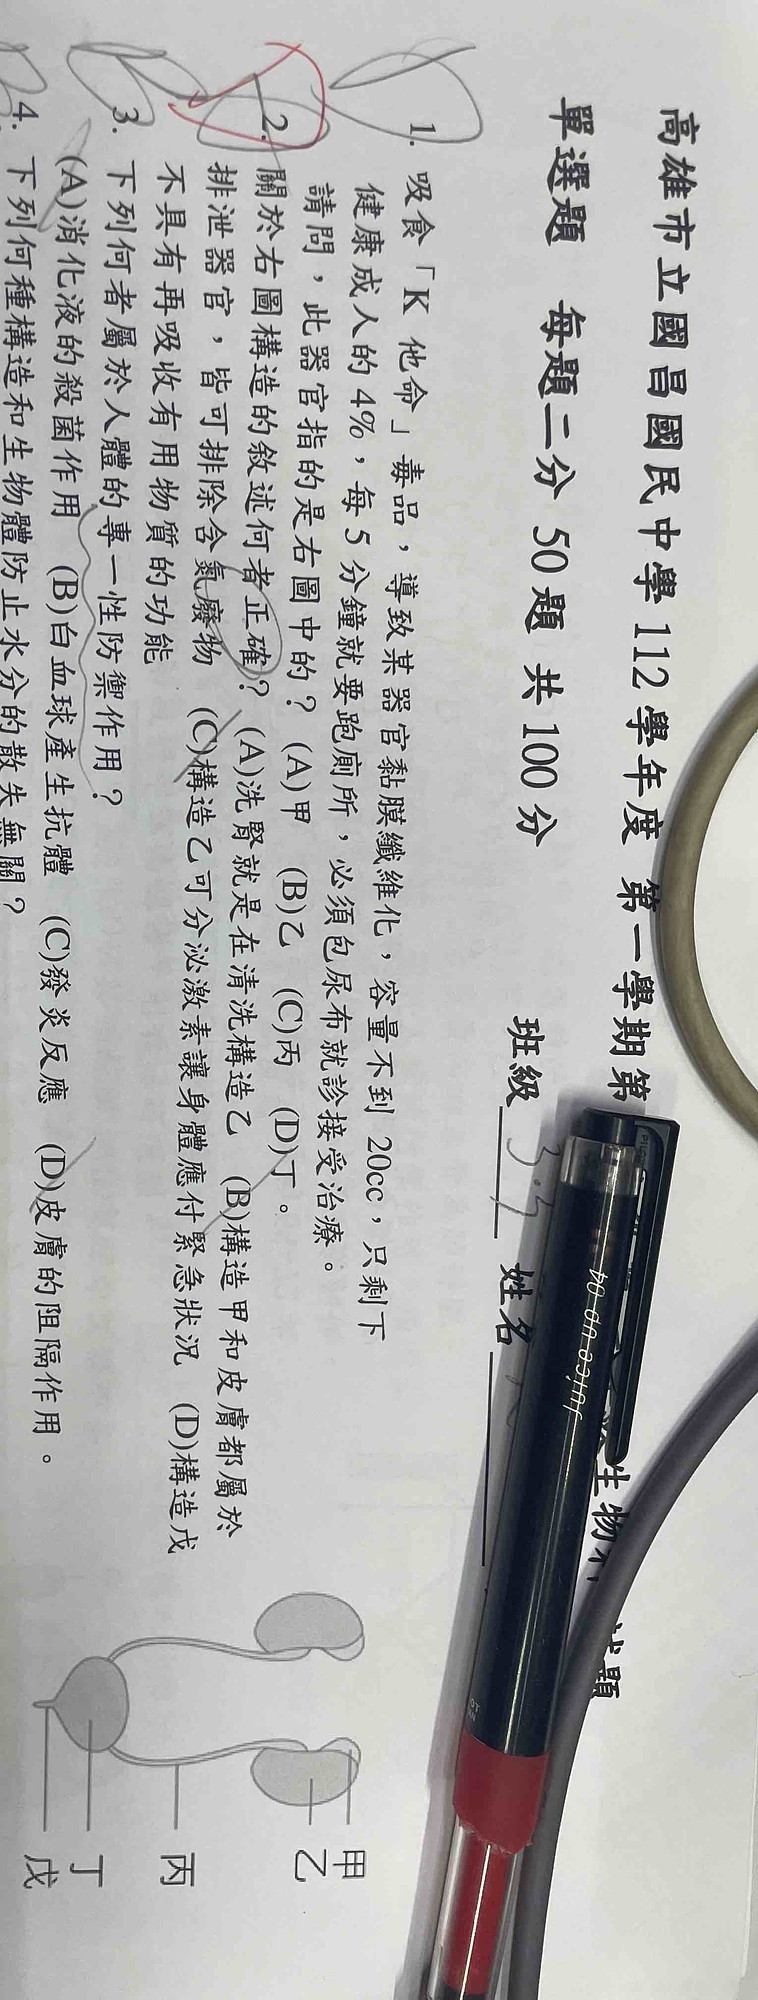 高雄市立國昌國民中學 112 學年度 第一學期第
生物科 試題
單選題 每題二分 50 題 共 100 分
班級 姓名
1. 吸食「K 他命」毒品，導致某器官黏膜纖維化，容量不到 20cc，只剩下
健康成人的 4%，每 5 分鐘就要跑廁所，必須包尿布就診接受治療。
請問，此器官指的是右圖中的？ (A)甲 (B)乙 (C)丙 (D)丁。
2. 關於右圖構造的敘述何者正確？ (A)洗腎就是在清洗構造乙 (B)構造甲和皮膚都屬於
排泄器官，皆可排除含氮廢物 (C)構造乙可分泌激素讓身體應付緊急狀況 (D)構造戊
不具有再吸收有用物質的功能
3. 下列何者屬於人體的專一性防禦作用？
(A)消化液的殺菌作用 (B)白血球產生抗體 (C)發炎反應 (D)皮膚的阻隔作用。
4. 下列何種構造和生物體防止水分的散失無關？
甲
乙
丙
丁
戊
Juice up 04